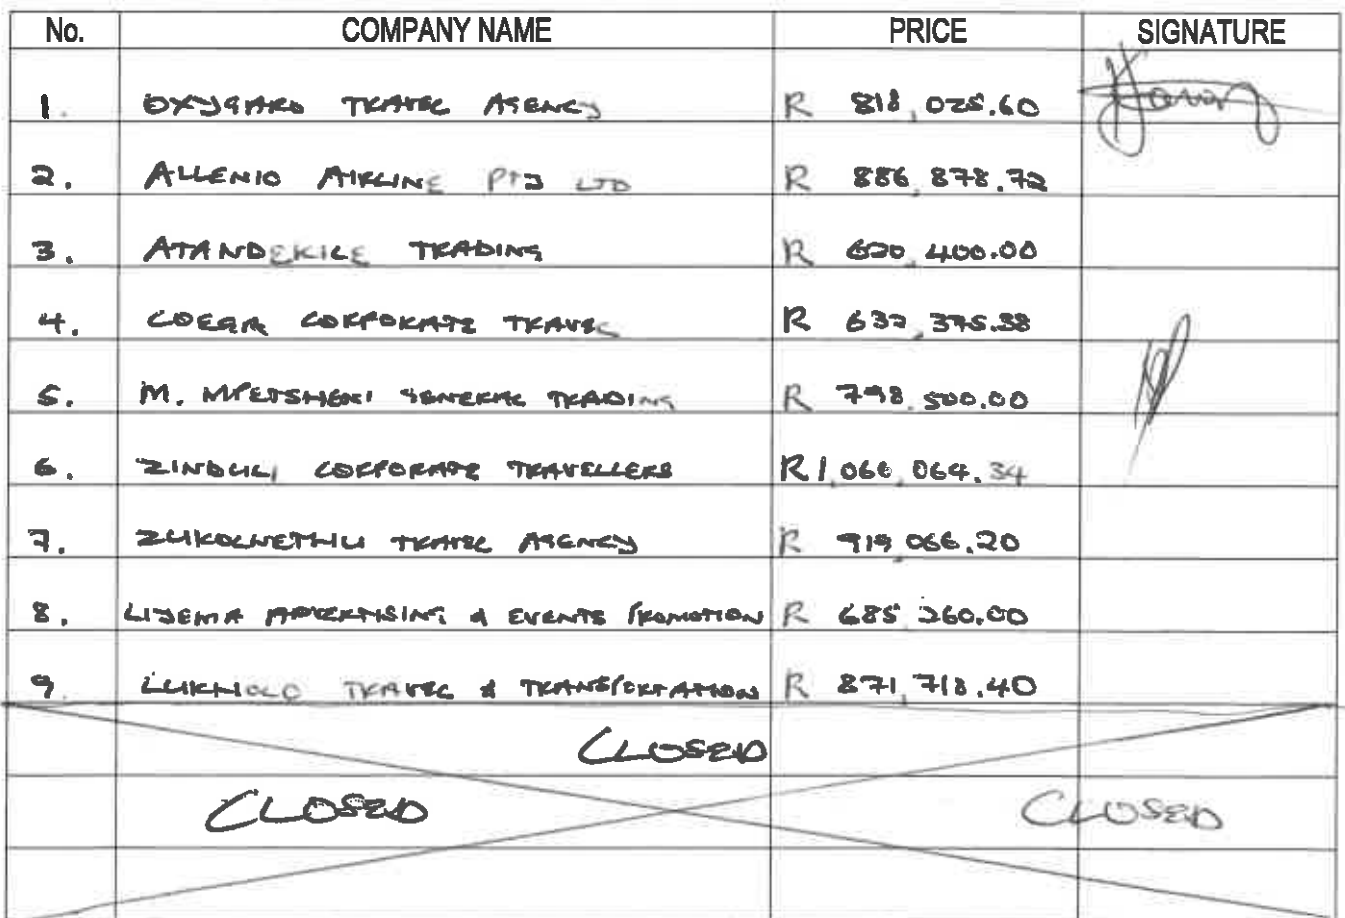 No. COMPANY NAME PRICE SIGNATURE
1. OXYGARD TRAVEL AGENCY R 818,025.60
2. ALLENIO AIRLINE PTJ LTD R 886,878.72
3. ATANDEKILE TRADING R 620,400.00
4. COEGA CORPORATE TRAVEL R 632,375.38
5. M. MPETSHENI GENERAL TRADING R 798,500.00
6. ZINDULI CORPORATE TRAVELLERS R 1,066,064.34
7. ZUKOLWETHU TRAVEL AGENCY R 919,066.20
8. LIJEMA ADVERTISING & EVENTS PROMOTION R 685,260.00
9. LUKHOLO TRAVEL & TRANSPORTATION R 871,718.40
CLOSED
CLOSED CLOSED